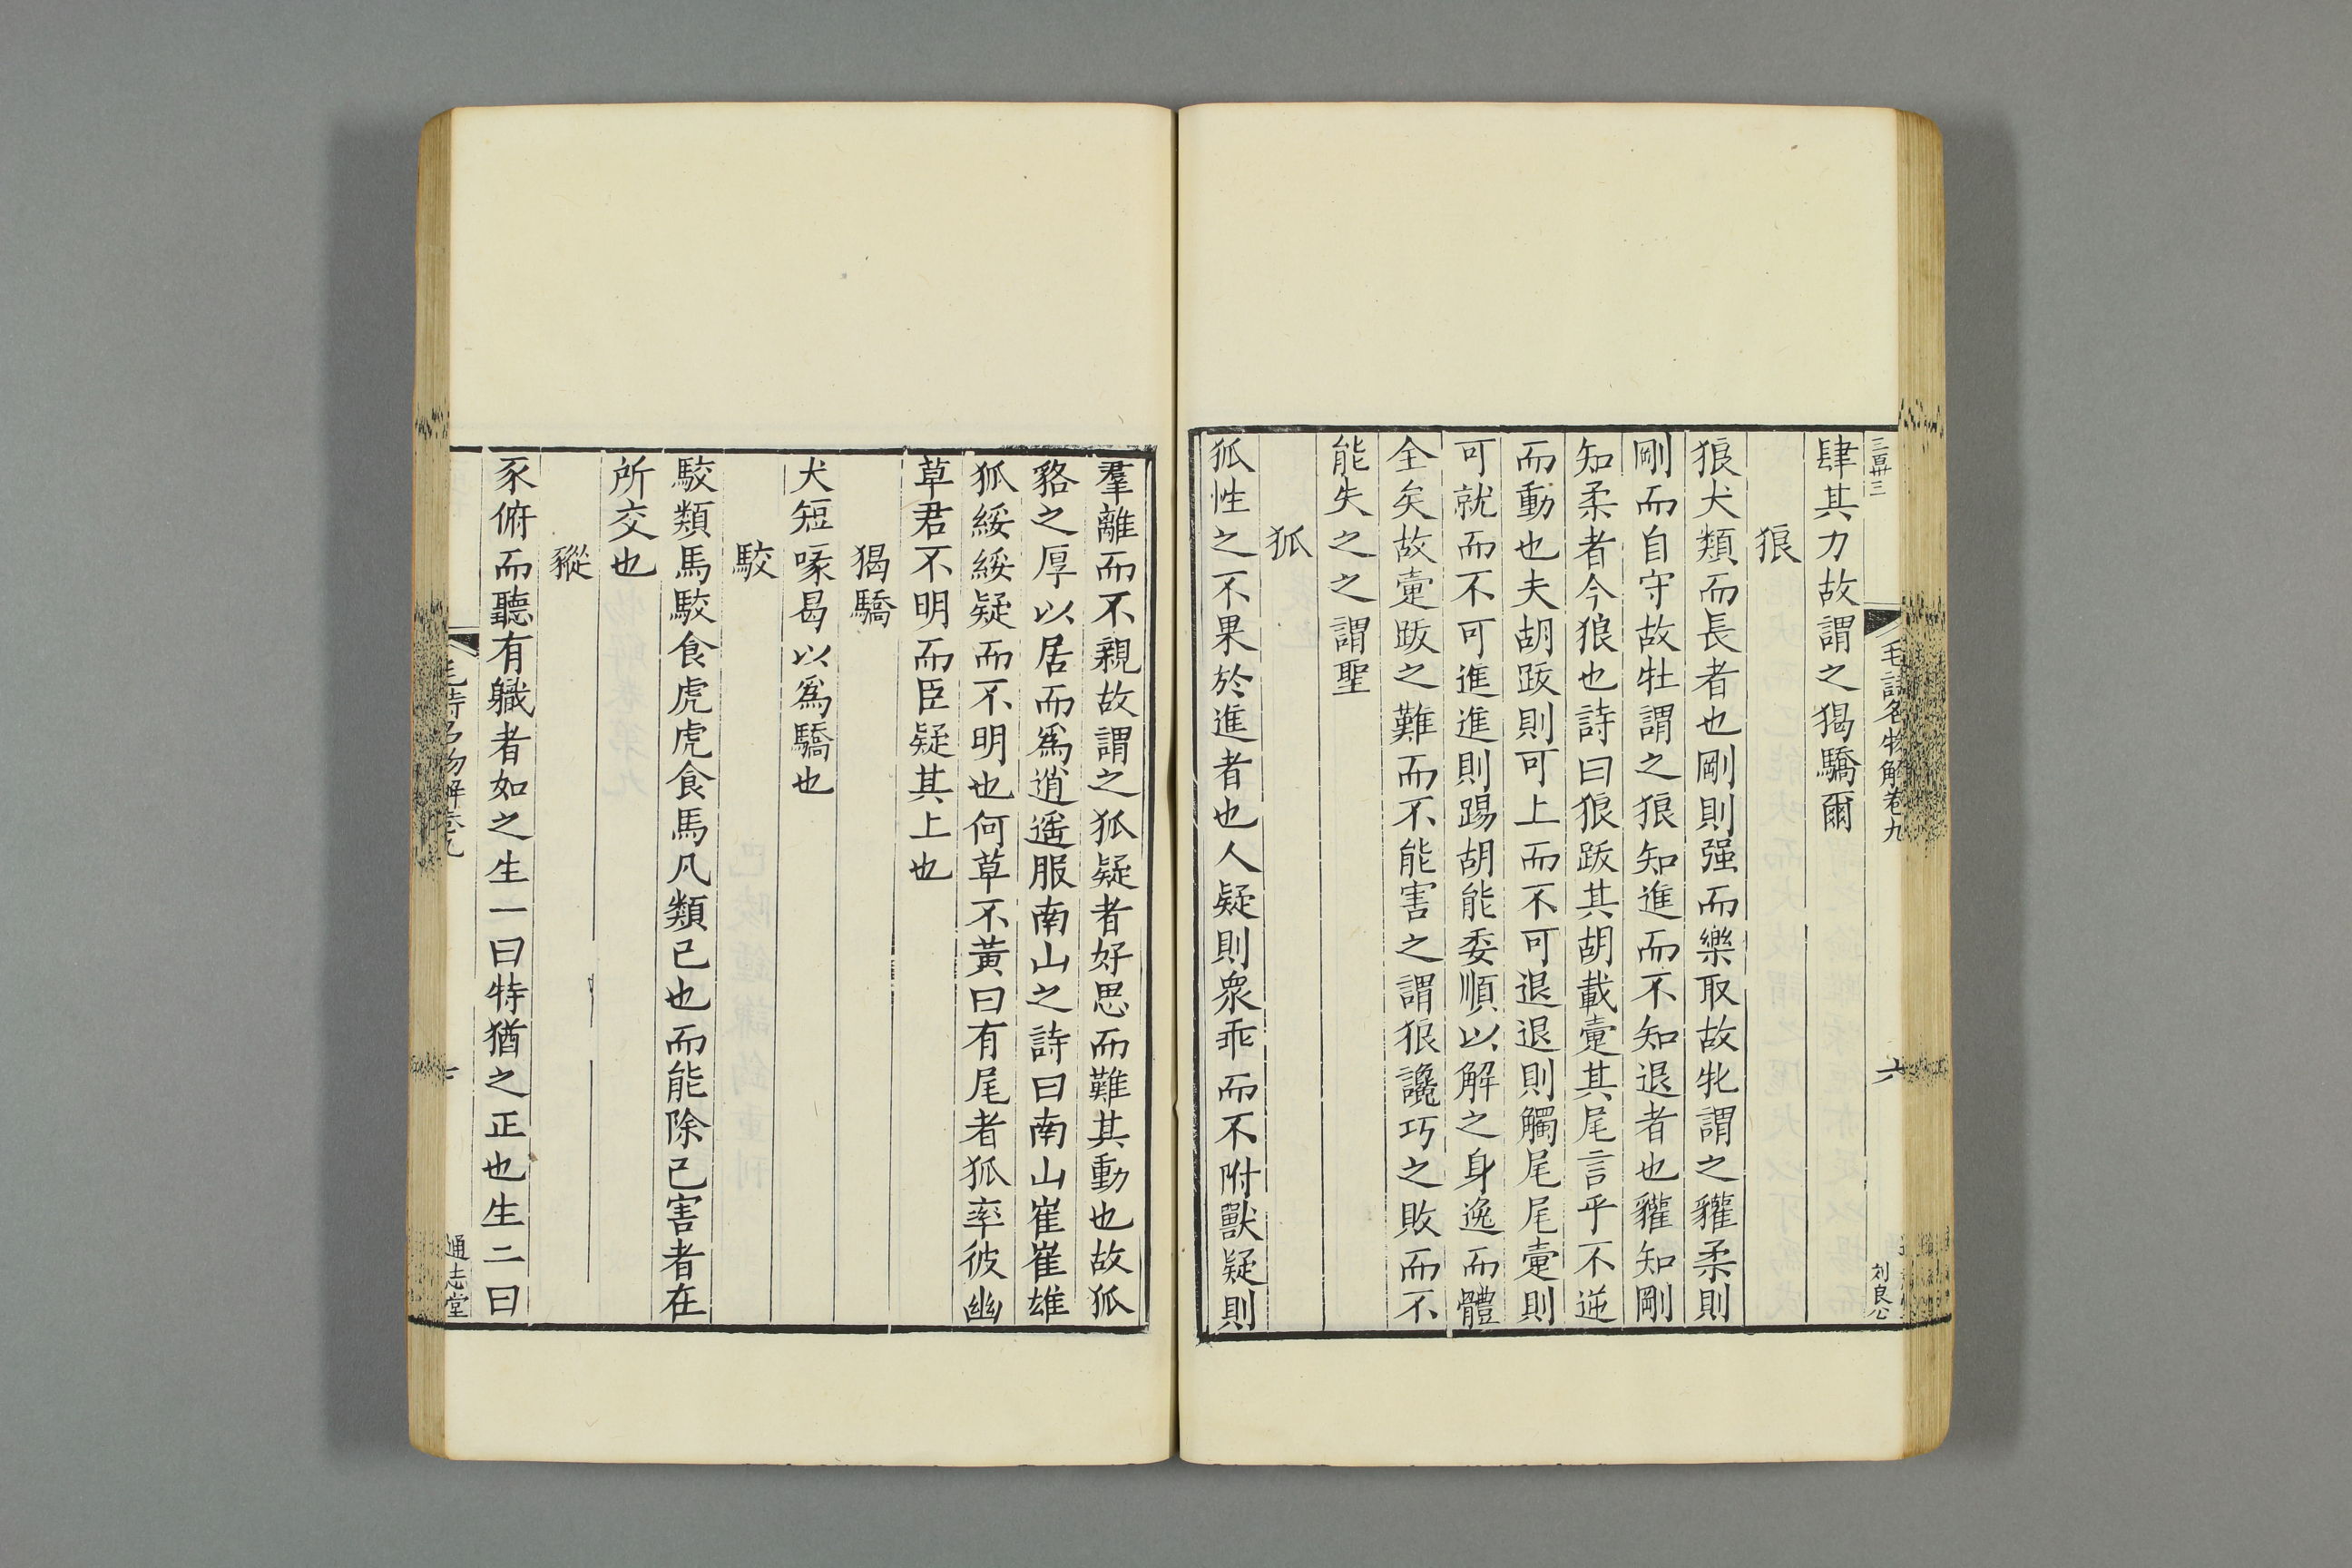 三百卅三
毛詩名物解卷九
六
刘良公
肆其力故謂之猲驕爾
狼
狼犬類而長者也剛則强而樂取故牝謂之貛柔則
剛而自守故牡謂之狼知進而不知退者也貛知剛
知柔者今狼也詩曰狼跋其胡載疐其尾言乎不逆
而動也夫胡跋則可上而不可退退則觸尾尾疐則
可就而不可進進則踢胡能委順以解之身逸而體
全矣故疐跋之難而不能害之謂狼讒巧之敗而不
能失之之謂聖
狐
狐性之不果於進者也人疑則衆乖而不附獸疑則
羣離而不親故謂之狐疑者好思而難其動也故狐
貉之厚以居而爲逍遥服南山之詩曰南山崔崔雄
狐綏綏疑而不明也何草不黃曰有尾者狐率彼幽
草君不明而臣疑其上也
猲驕
犬短喙曷以爲驕也
駮
駮類馬駮食虎虎食馬凡類已也而能除已害者在
所交也
豵
豕俯而聽有職者如之生一曰特猶之正也生二曰
毛詩名物解卷九
七
通志堂